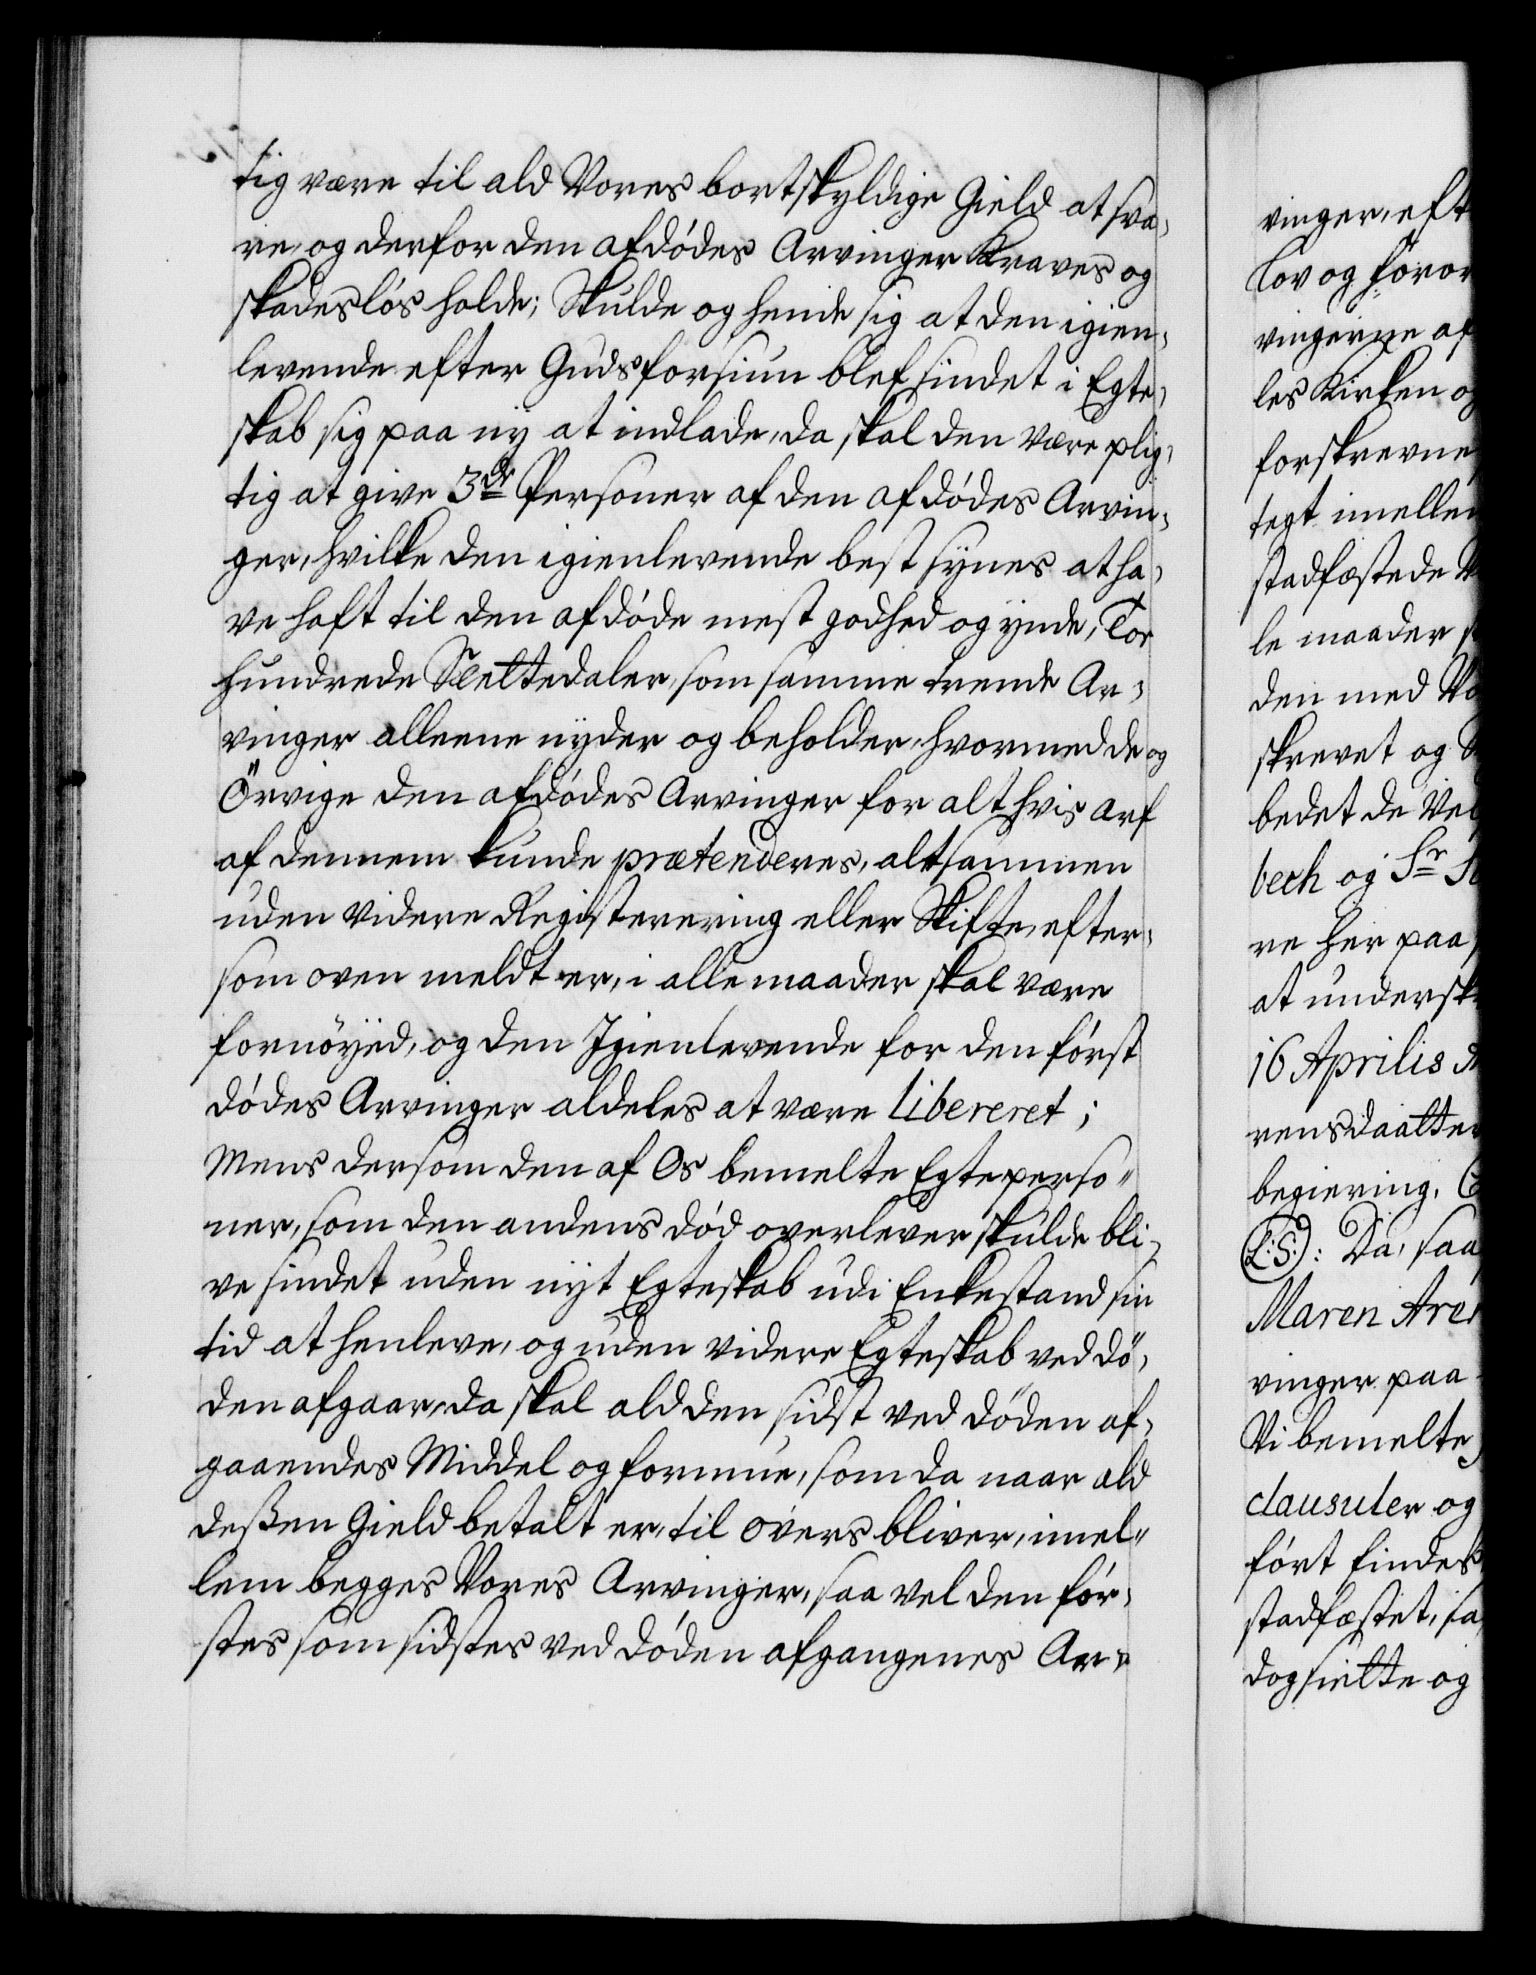 tig være til ald Vores bortskyldige Gield at sva,
re, og derfor den afdødes Arvinger Kraves og
skadesløs holde; Skulde og hende sig at den igien,
levende efter Guds forsiun blef sindet i Egte,
skab sig paa ny at indlade, da skal den være plig,
tig at give 3de Personer af den afdødes Arvin,
ger, hvilke den igienlevende best synes at ha,
ve haft til den afdøde mest godhed og ynde, Toe
hundrede Slettedaler, som samme trende Ar,
vinger alleene nyder og beholder, hvormed de og
Örvige den afdødes Arvinger for alt hvis arf
af dennem kunde prætenderes, altsammen
uden videre Registerering eller Skifte, efter,
som oven meldt er, i alle maader skal være
fornöyed, og den Igienlevende for den først
dødes Arvinger aldeles at være libereret;
Mens dersom den af Os bemelte Egteperso"
ner, som den andens død overlever skulde bli,
ve sindet uden nyt Egteskab udi Enkestand sin
tid at henleve, og uden videre Egteskab ved dö,
den afgaar, da skal ald den sidst ved döden af,
gaaendes Middel og formue, som da naar ald
dessen Gield betalt er, til overs bliver, imel"
lem begges Vores Arvinger, saa vel den før,
stes som sidstes ved døden afgangenes Ar"
vinger, eft
Lov og foror
vingerne af
les Kirken og
forskrevne
tegt imellem
stadfæstede V
le maader s
den med Vo
skrevet og
bedet de Vel
bech og Sr
re her paa
at underskr
16 Aprilis A
rensdaatter
begiering. C
(L:S:): Da, saa
Maren Are
vinger paa
Vi bemelte
clausuler og
fört findes
stadfæstet, sa
dog sielte og